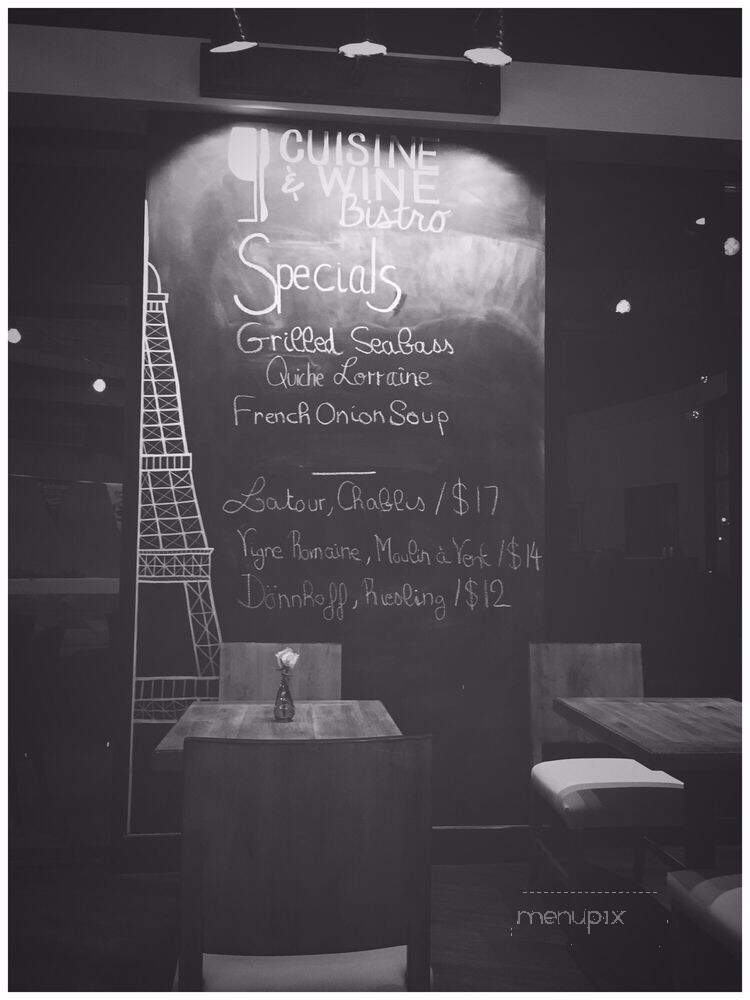 CUISINE
& WINE
Bistro
Specials
Grilled Seabass
Quiche Lorraine
French Onion Soup
Latour, Chablis / $17
Vigne Romaine, Moulin à Vent / $14
Dönnhoff, Riesling / $12
menupix